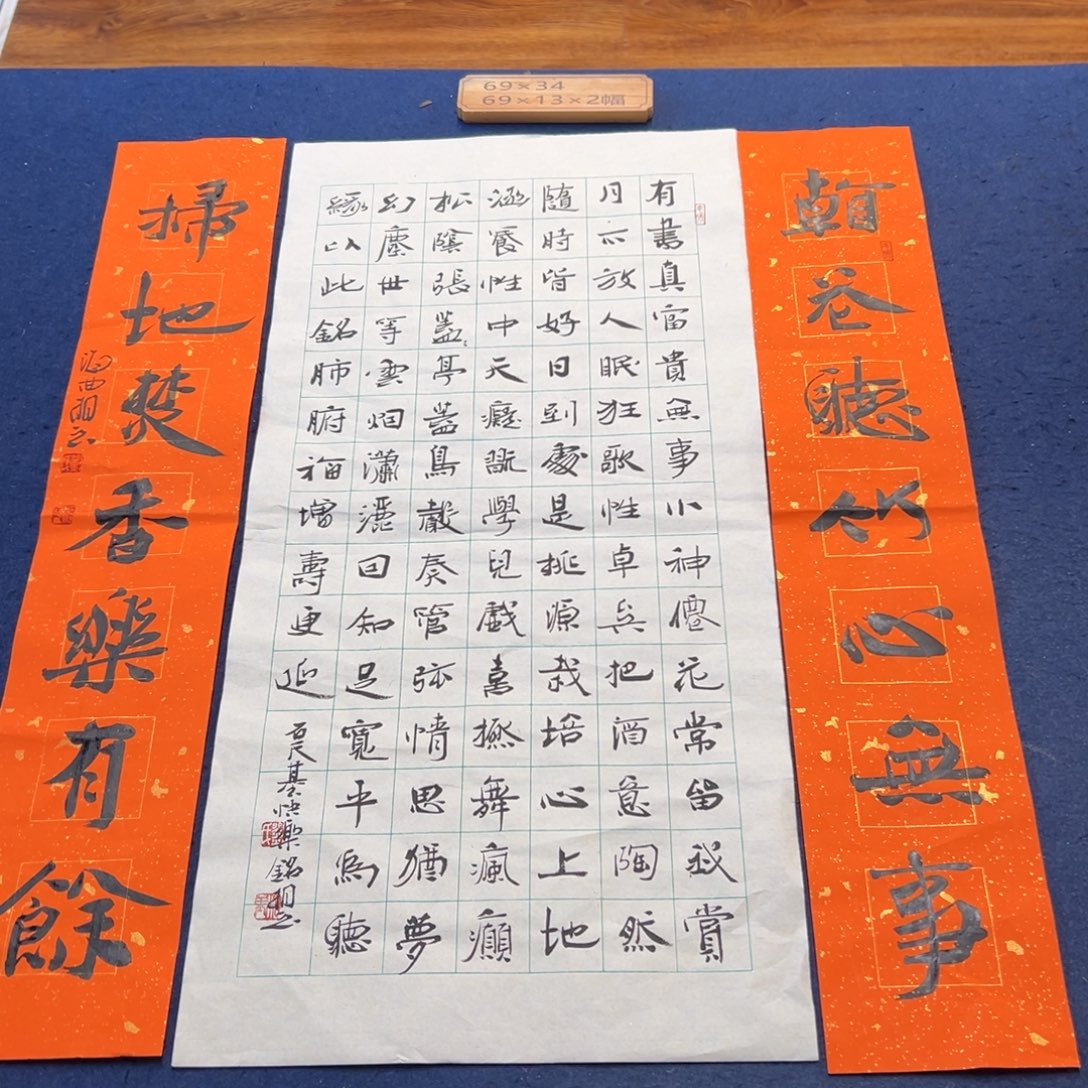 69×34
69×13×2幅
卷聽竹心無事
有書真富貴無事小神僊花常留我賞
月不放人眠狂歌性卓兵把酒意陶然
隨時皆好日到處是桃源栽培心上地
涵養性中天癡學兒戲喜舞瘋癲
松陰張蓋亭蓋鳥聲奏管弦情思猶夢
幻塵世等雲烟瀟灑回知足寬平為聽
緣以此銘肺腑福增壽更延
基快樂銘
掃地焚香樂有餘